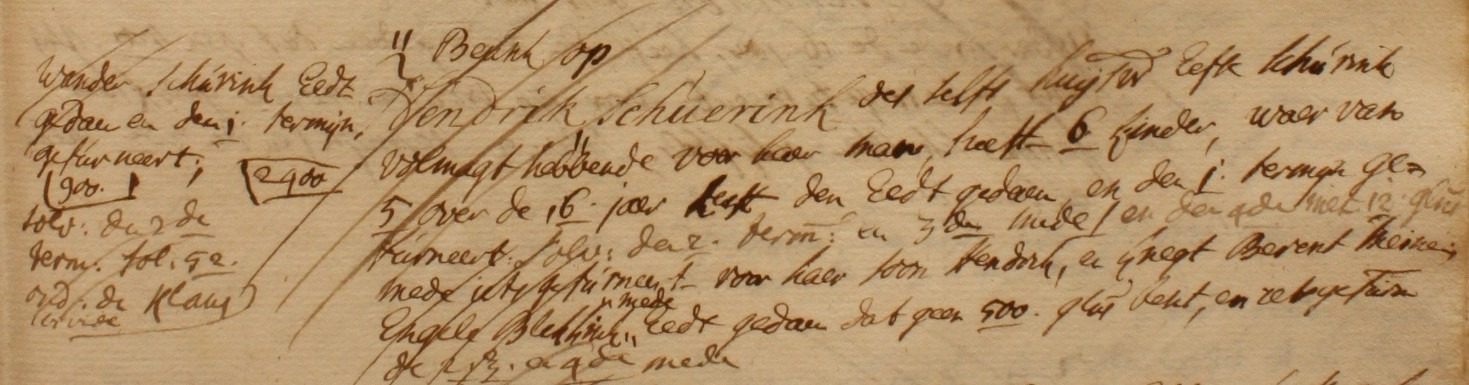 Wander Schürink Eedt
gedaen en den 1. termijn,
gefurneert;
900. 2900
solv: den 2 de
term. fol. 52.
ord. de Klaus
" Beunk op
Hendrik Schuerink des selfs huijsvr Eefse Schurink
volmagt hebbende voor haer man, heeft 6 kinder, waer van
5 over de 16. jaer heeft den Eedt gedaen, en den 1. termijn ge=
furneert. solv: den 2. term: en 3 den mede / en den 4de met 12. glns
mede jets gefurneert voor haer soon Hendrik, en knegt Berent
Engele " mede
Eedt gedaen dat geen 500. glns bent, en
de 2. en 4de mede